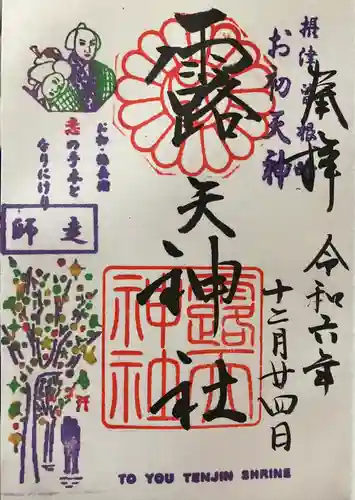 奉拝
摂津國曽根崎
お初天神
露天神社
露天神社
令和六年
十二月廿四日
お初・徳兵衛
恋の手本と
なりにけり
師走
TO YOU TENJIN SHRINE